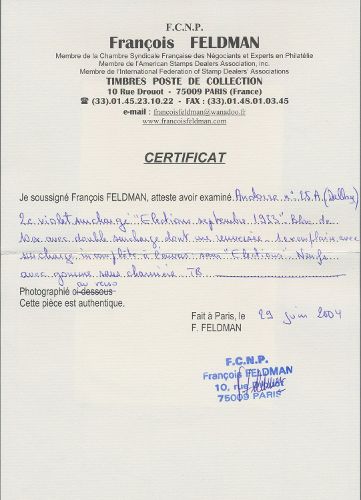 F.C.N.P.
François FELDMAN
Membre de la Chambre Syndicale Française des Négociants et Experts en Philatélie
Membre de l'American Stamps Dealers Association, inc.
Membre de l'International Federation of Stamp Dealers' Associations
TIMBRES POSTE DE COLLECTION
10 Rue Drouot - 75009 PARIS (France)
☎ (33).01.45.23.10.22 - FAX : (33).01.48.01.03.45
e-mail : francoisfeldman@wanadoo.fr
www.francoisfeldman.com
CERTIFICAT
Je soussigné François FELDMAN, atteste avoir examiné. n° 15A (Dallay)
2c. violet surchargé "Elections septembre 1953" Bloc de
10ex avec double surcharge dont une renversée. 1 exemplaire avec
surcharge incomplète à l'envers sans "Elections". Neufs
avec gomme sans charnière TB
au verso
Photographié ci-dessous
Cette pièce est authentique.
Fait à Paris, le 29 juin 2004
F. FELDMAN
F.C.N.P.
François FELDMAN
10, rue Drouot
75009 PARIS